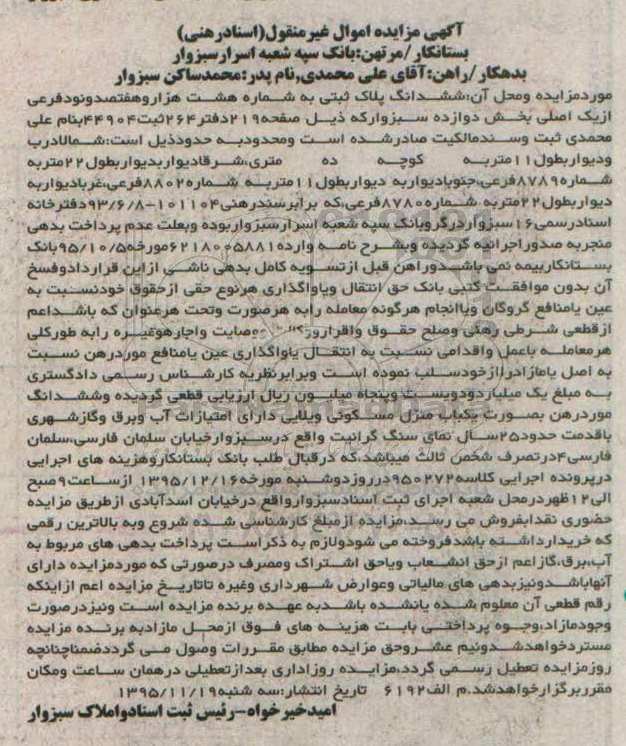 آگهی مزایده اموال غیرمنقول(اسنادرهنی)
بستانکار/مرتهن:بانک سپه شعبه اسرارسبزوار
بدهکار/راهن:آقای علی محمدی,نام پدر:محمدساکن سبزوار
موردمزایده ومحل آن:ششدانگ پلاک ثبتی به شماره هشت هزاروهفتصدونودفرعی
ازیک اصلی بخش دوازده سبزوارکه ذیل صفحه۲۱۹دفتر۲۶۴ثبت۴۴۹۰۴بنام علی
محمدی ثبت وسندمالکیت صادرشده است ومحدودبه حدودذیل است:شمالادرب
ودیواربطول۱۱متربه کوچه ده متری,شرقادیواربدیواربطول۲۲متربه
شماره۸۷۸۹فرعی,جنوبادیواربه دیواربطول۱۱متربه شماره۸۸۰۲فرعی,غربادیواربه
دیواربطول۲۲متربه شماره۸۷۸۰فرعی,که برابرسندرهنی۱۰۱۱۰۴-۹۳/۶/۸دفترخانه
اسنادرسمی۱۶سبزواردرگروبانک سپه شعبه اسرارسبزواربوده وبعلت عدم پرداخت بدهی
منجربه صدوراجرائیه گردیده وبشرح نامه وارده۶۲۱۸۰۰۵۸۸۱مورخه۹۵/۱۰/۵بانک
بستانکاربیمه نمی باشدوراهن قبل ازتسویه کامل بدهی ناشی ازاین قراردادوفسخ
آن بدون موافقت کتبی بانک حق انتقال ویاواگذاری هرنوع حقی ازحقوق خودنسبت به
عین یامنافع گروگان ویاانجام هرگونه معامله رابه هرصورت وتحت هرعنوان که باشداعم
ازقطعی شرطی رهنی وصلح حقوق واقراروکالت ووصایت واجارهوغیره رابه طورکلی
هرمعامله یاعمل واقدامی نسبت به انتقال یاواگذاری عین یامنافع موردرهن نسبت
به اصل یامازادراازخودسلب نموده است وبرابرنظریه کارشناس رسمی دادگستری
به مبلغ یک میلیاردودویست وپنجاه میلیون ریال ارزیابی قطعی گردیده وششدانگ
موردرهن بصورت یکباب منزل مسکونی ویلایی دارای امتیازات آب وبرق وگازشهری
باقدمت حدود۲۵سال نمای سنگ گرانیت واقع درسبزوارخیابان سلمان فارسی,سلمان
فارسی۴درتصرف شخص ثالث میباشد,که درقبال طلب بانک بستانکاروهزینه های اجرایی
درپرونده اجرایی کلاسه۹۵۰۰۲۷۲درروزدوشنبه مورخه۱۳۹۵/۱۲/۱۶ ازساعت۹صبح
الی۱۲ظهردرمحل شعبه اجرای ثبت اسنادسبزوارواقع درخیابان اسدآبادی ازطریق مزایده
حضوری نقدابفروش می رسد,مزایده ازمبلغ کارشناسی شده شروع وبه بالاترین رقمی
که خریدارداشته باشدفروخته می شودولازم به ذکراست پرداخت بدهی های مربوط به
آب,برق,گازاعم ازحق انشعاب ویاحق اشتراک ومصرف درصورتی که موردمزایده دارای
آنهاباشدونیزبدهی های مالیاتی وعوارض شهرداری وغیره تاتاریخ مزایده اعم ازاینکه
رقم قطعی آن معلوم شده یانشده باشدبه عهده برنده مزایده است ونیزدرصورت
وجودمازاد,وجوه پرداختی بابت هزینه های فوق ازمحل مازادبه برنده مزایده
مستردخواهدشدونیم عشروحق مزایده مطابق مقررات وصول می گرددضمناچنانچه
روزمزایده تعطیل رسمی گردد,مزایده روزاداری بعدازتعطیلی درهمان ساعت ومکان
مقرربرگزارخواهدشد.م الف۶۱۹۲ تاریخ انتشار:سه شنبه۱۳۹۵/۱۱/۱۹
امیدخیرخواه-رئیس ثبت اسنادواملاک سبزوار